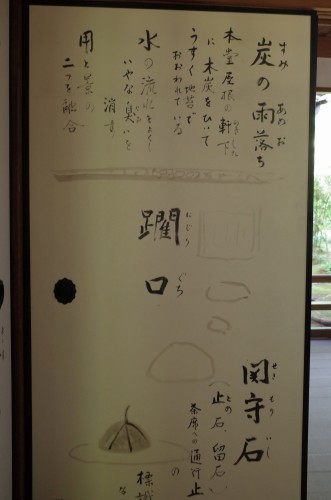 炭の雨落ち
すみ あめ お
本堂屋根の軒下
のき した
に木炭をひいて
うすく地苔で
おおわれている
水の流れをよくし
いやな臭いを
消す。
用と景の
二つを融合
躙口
にじり ぐち
関守石
せき もり いし
(止石、留石)
とめ
茶席への通行止
の
標識